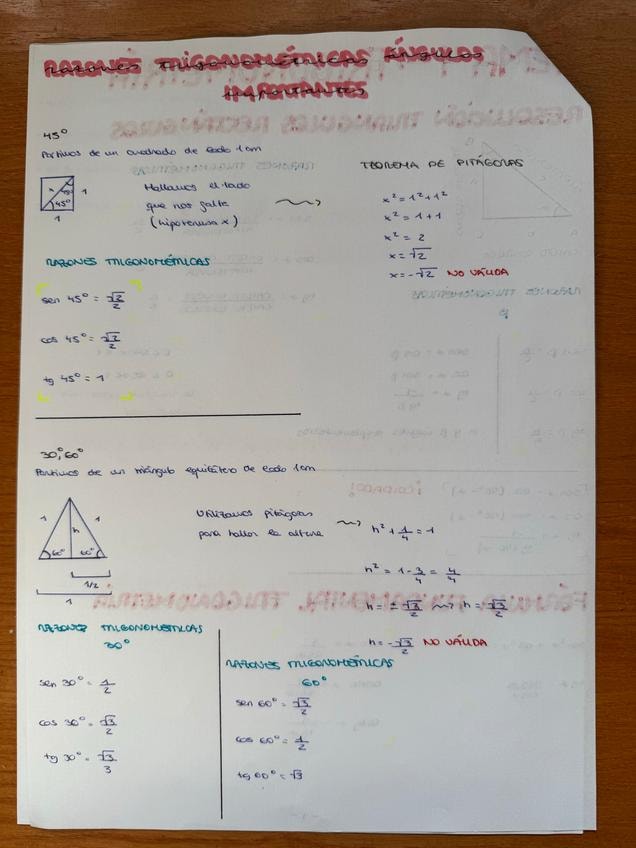 RAZONES TRIGONOMÉTRICAS ÁNGULOS
IMPORTANTES
45°
Partimos de un cuadrado de lado 1cm
x 45° 1
45°
1
Hallamos el lado
que nos falta
(hipotenusa x)
TEOREMA DE PITÁGORAS
x² = 1² + 1²
x² = 1 + 1
x² = 2
x = √2
x = -√2 NO VÁLIDA
RAZONES TRIGONOMÉTRICAS
sen 45° = √2/2
cos 45° = √2/2
tg 45° = 1
30°, 60°
Partimos de un triángulo equilátero de lado 1cm
1 h 1
60° 60°
1/2
1
Utilizamos pitágoras
para hallar la altura
h² + 1/4 = 1
h² = 1 - 3/4 = 4/4
h = ± √3/2 h = √3/2
h = -√3/2 NO VÁLIDA
RAZONES TRIGONOMÉTRICAS
30°
sen 30° = 1/2
cos 30° = √3/2
tg 30° = √3/3
RAZONES TRIGONOMÉTRICAS
60°
sen 60° = √3/2
cos 60° = 1/2
tg 60° = √3